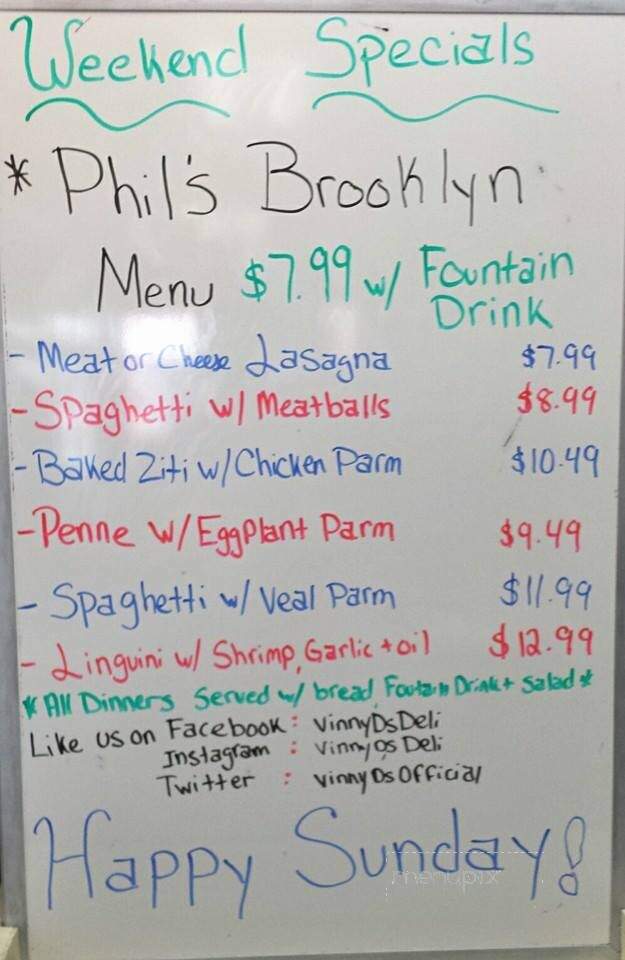 Weekend Specials
* Phil's Brooklyn
Menu $7.99 w/ Fountain
Drink
- Meat or Cheese Lasagna $7.99
- Spaghetti w/ Meatballs $8.99
- Baked Ziti w/ Chicken Parm $10.49
- Penne w/ Eggplant Parm $9.49
- Spaghetti w/ Veal Parm $11.99
- Linguini w/ Shrimp, Garlic + oil $12.99
* All Dinners Served w/ bread, Foutain Drink + Salad *
Like us on Facebook : VinnyDsDeli
Instagram : VinnyDs Deli
Twitter : VinnyDsOfficial
Happy Sunday!
menupix